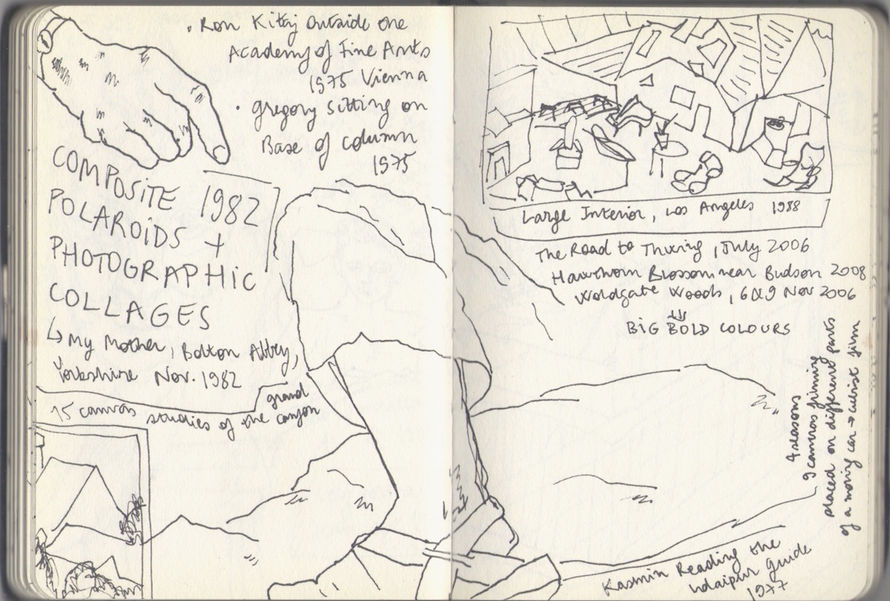 • Ron Kitaj outside the
Academy of Fine Arts
1975 Vienna
• gregory sitting on
Base of column
1975
COMPOSITE 1982
POLAROIDS +
PHOTOGRAPHIC
COLLAGES
↳ My Mother, Bolton Abbey,
Yorkshire Nov. 1982
15 canvas studies of the grand
canyon
Large Interior, Los Angeles 1988
The Road to Thwing, July 2006
Hawthorn Blossom near Rudston 2008
Woldgate Woods, 6 & 9 Nov 2006
BIG BOLD COLOURS
4 seasons
9 cameras filming
placed on different parts
of a moving car → cubist film
Kasmin Reading the
Udaipur Guide
1977